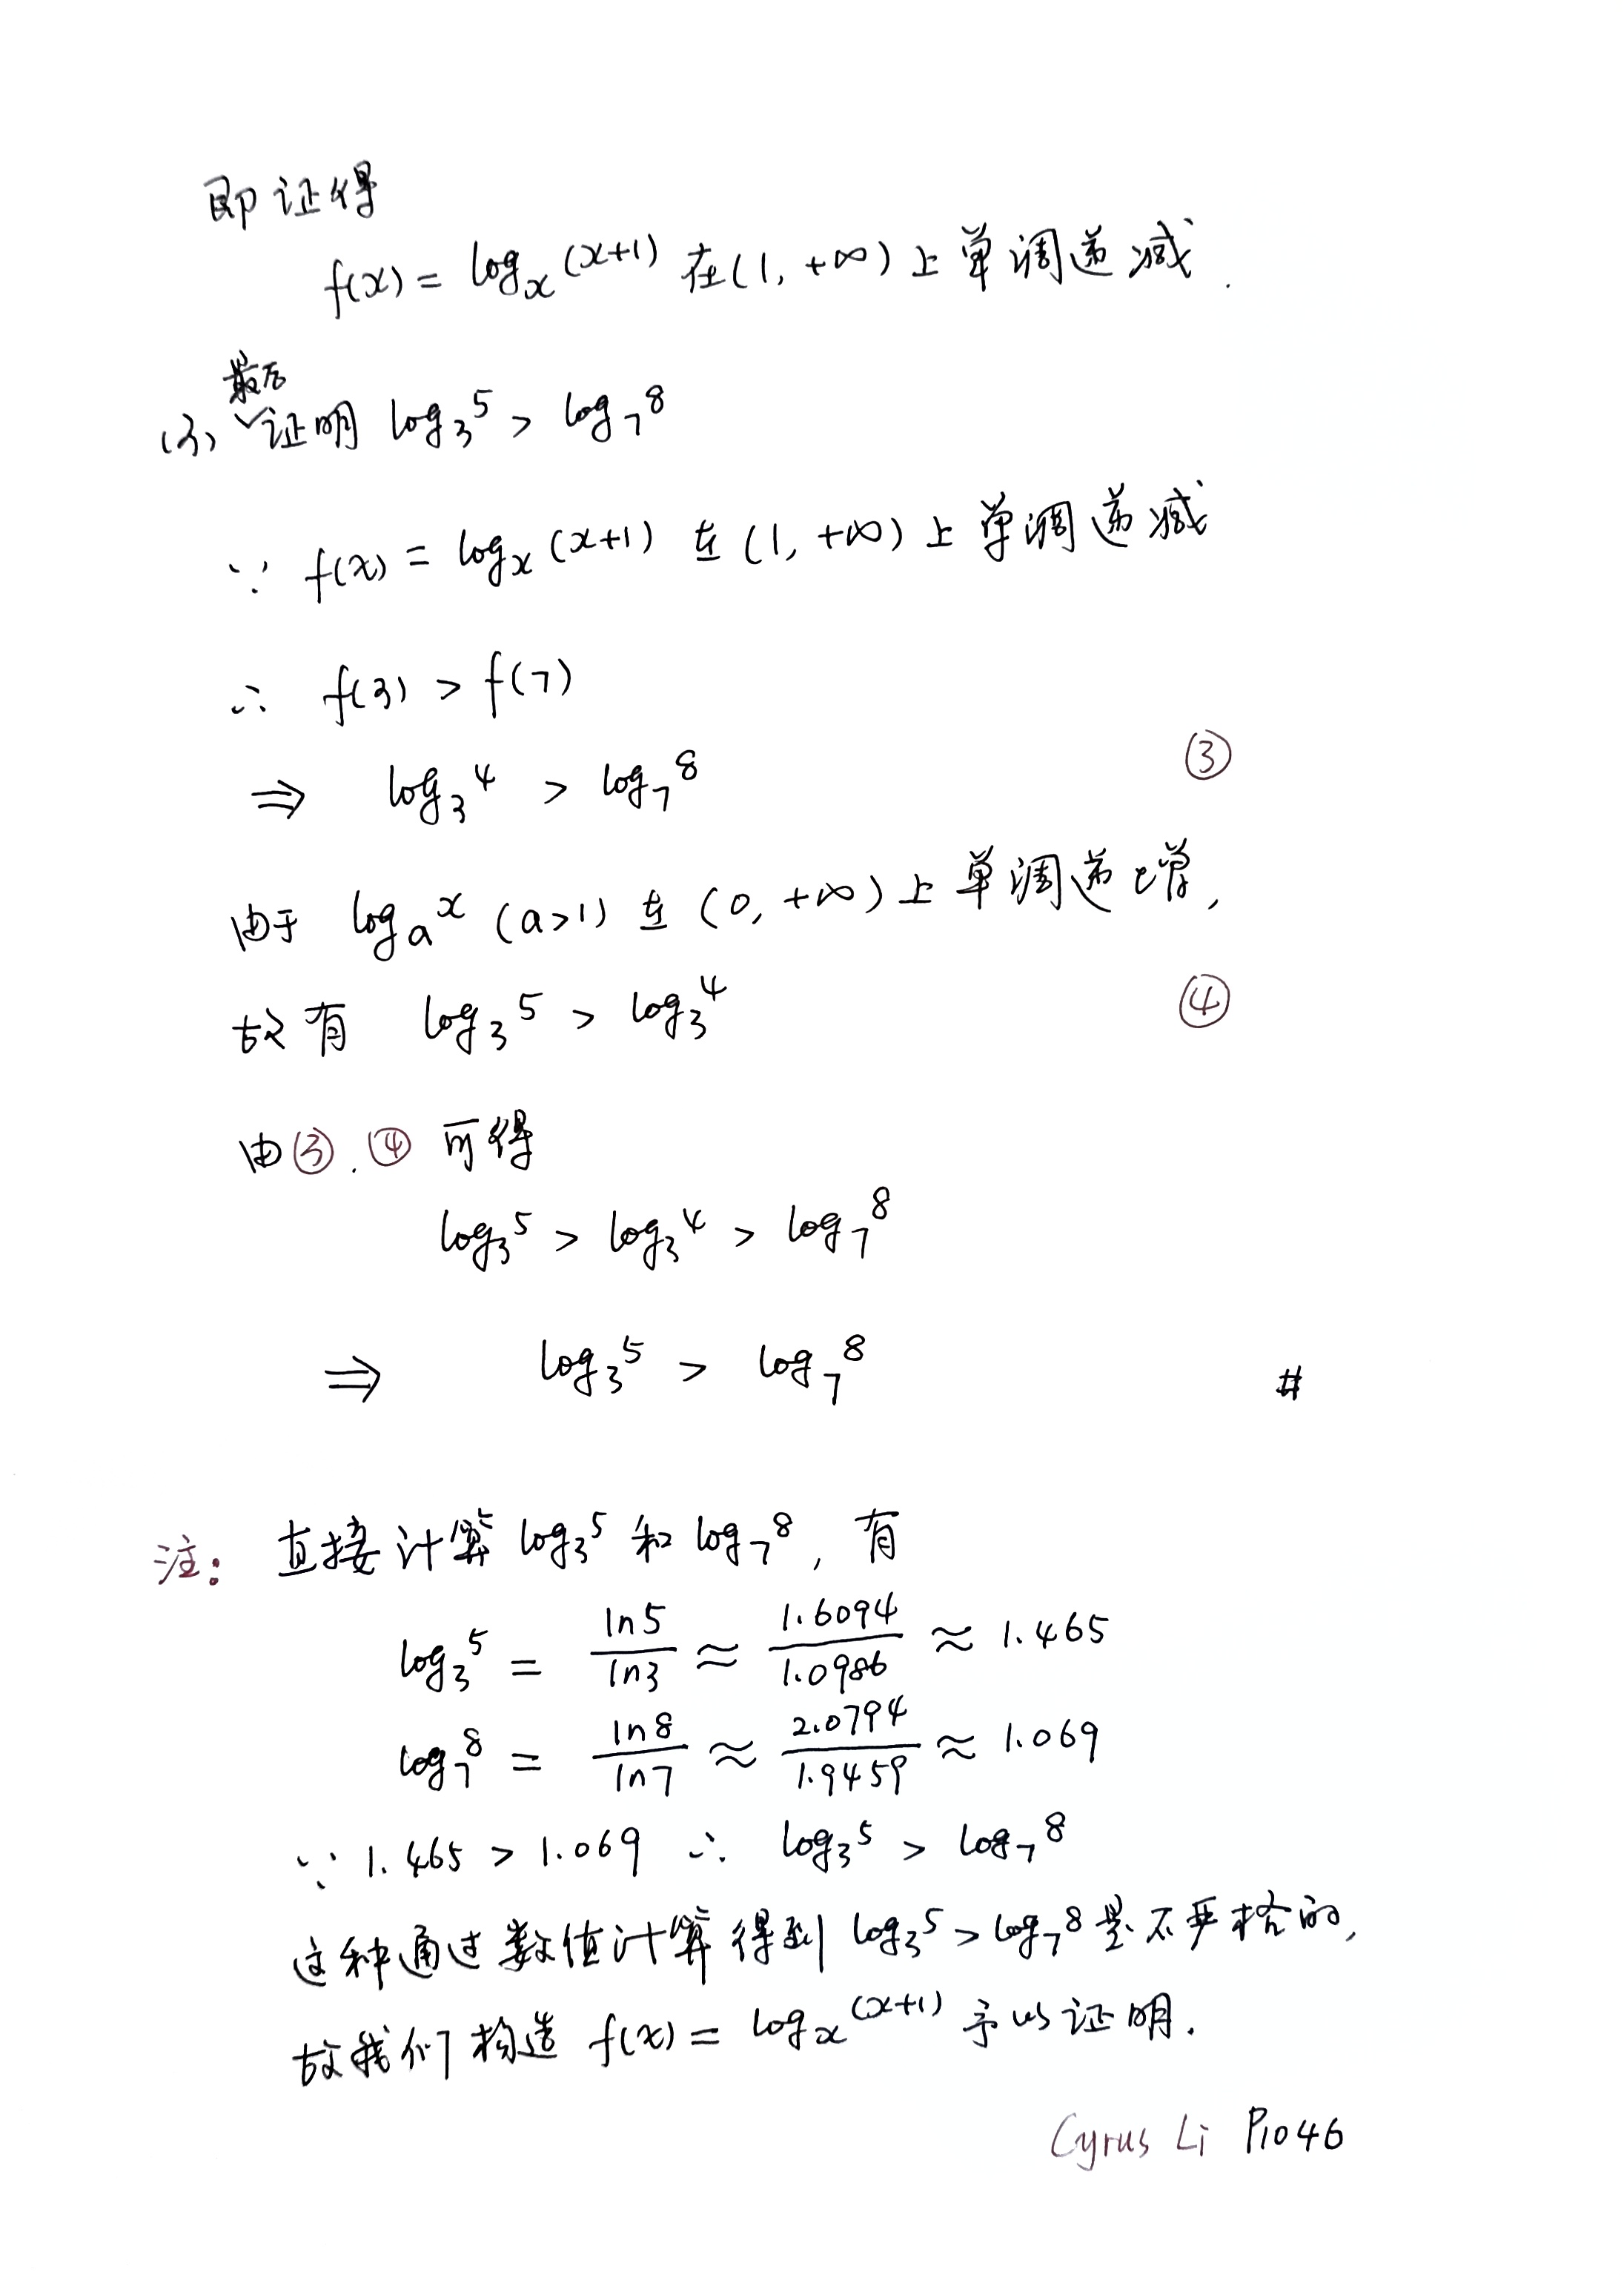 即证得
f(x) = log_x (x+1) 在(1, +∞)上单调递减.
最后
(3) 证明 log_3 5 > log_7 8
∵ f(x) = log_x (x+1) 在 (1, +∞) 上单调递减
∴ f(3) > f(7)
⇒ log_3 4 > log_7 8 ③
由于 log_a x (a>1) 在 (0, +∞) 上单调递增,
故有 log_3 5 > log_3 4 ④
由③.④ 可得
log_3 5 > log_3 4 > log_7 8
⇒ log_3 5 > log_7 8 #
注: 直接计算 log_3 5 和 log_7 8, 有
log_3 5 = ln5/ln3 ≈ 1.6094/1.0986 ≈ 1.465
log_7 8 = ln8/ln7 ≈ 2.0794/1.9459 ≈ 1.069
∵ 1.465 > 1.069 ∴ log_3 5 > log_7 8
这种通过数值计算得到 log_3 5 > log_7 8 是不严格的,
故我们构造 f(x) = log_x (x+1) 予以证明.
Cyrus Li P1046